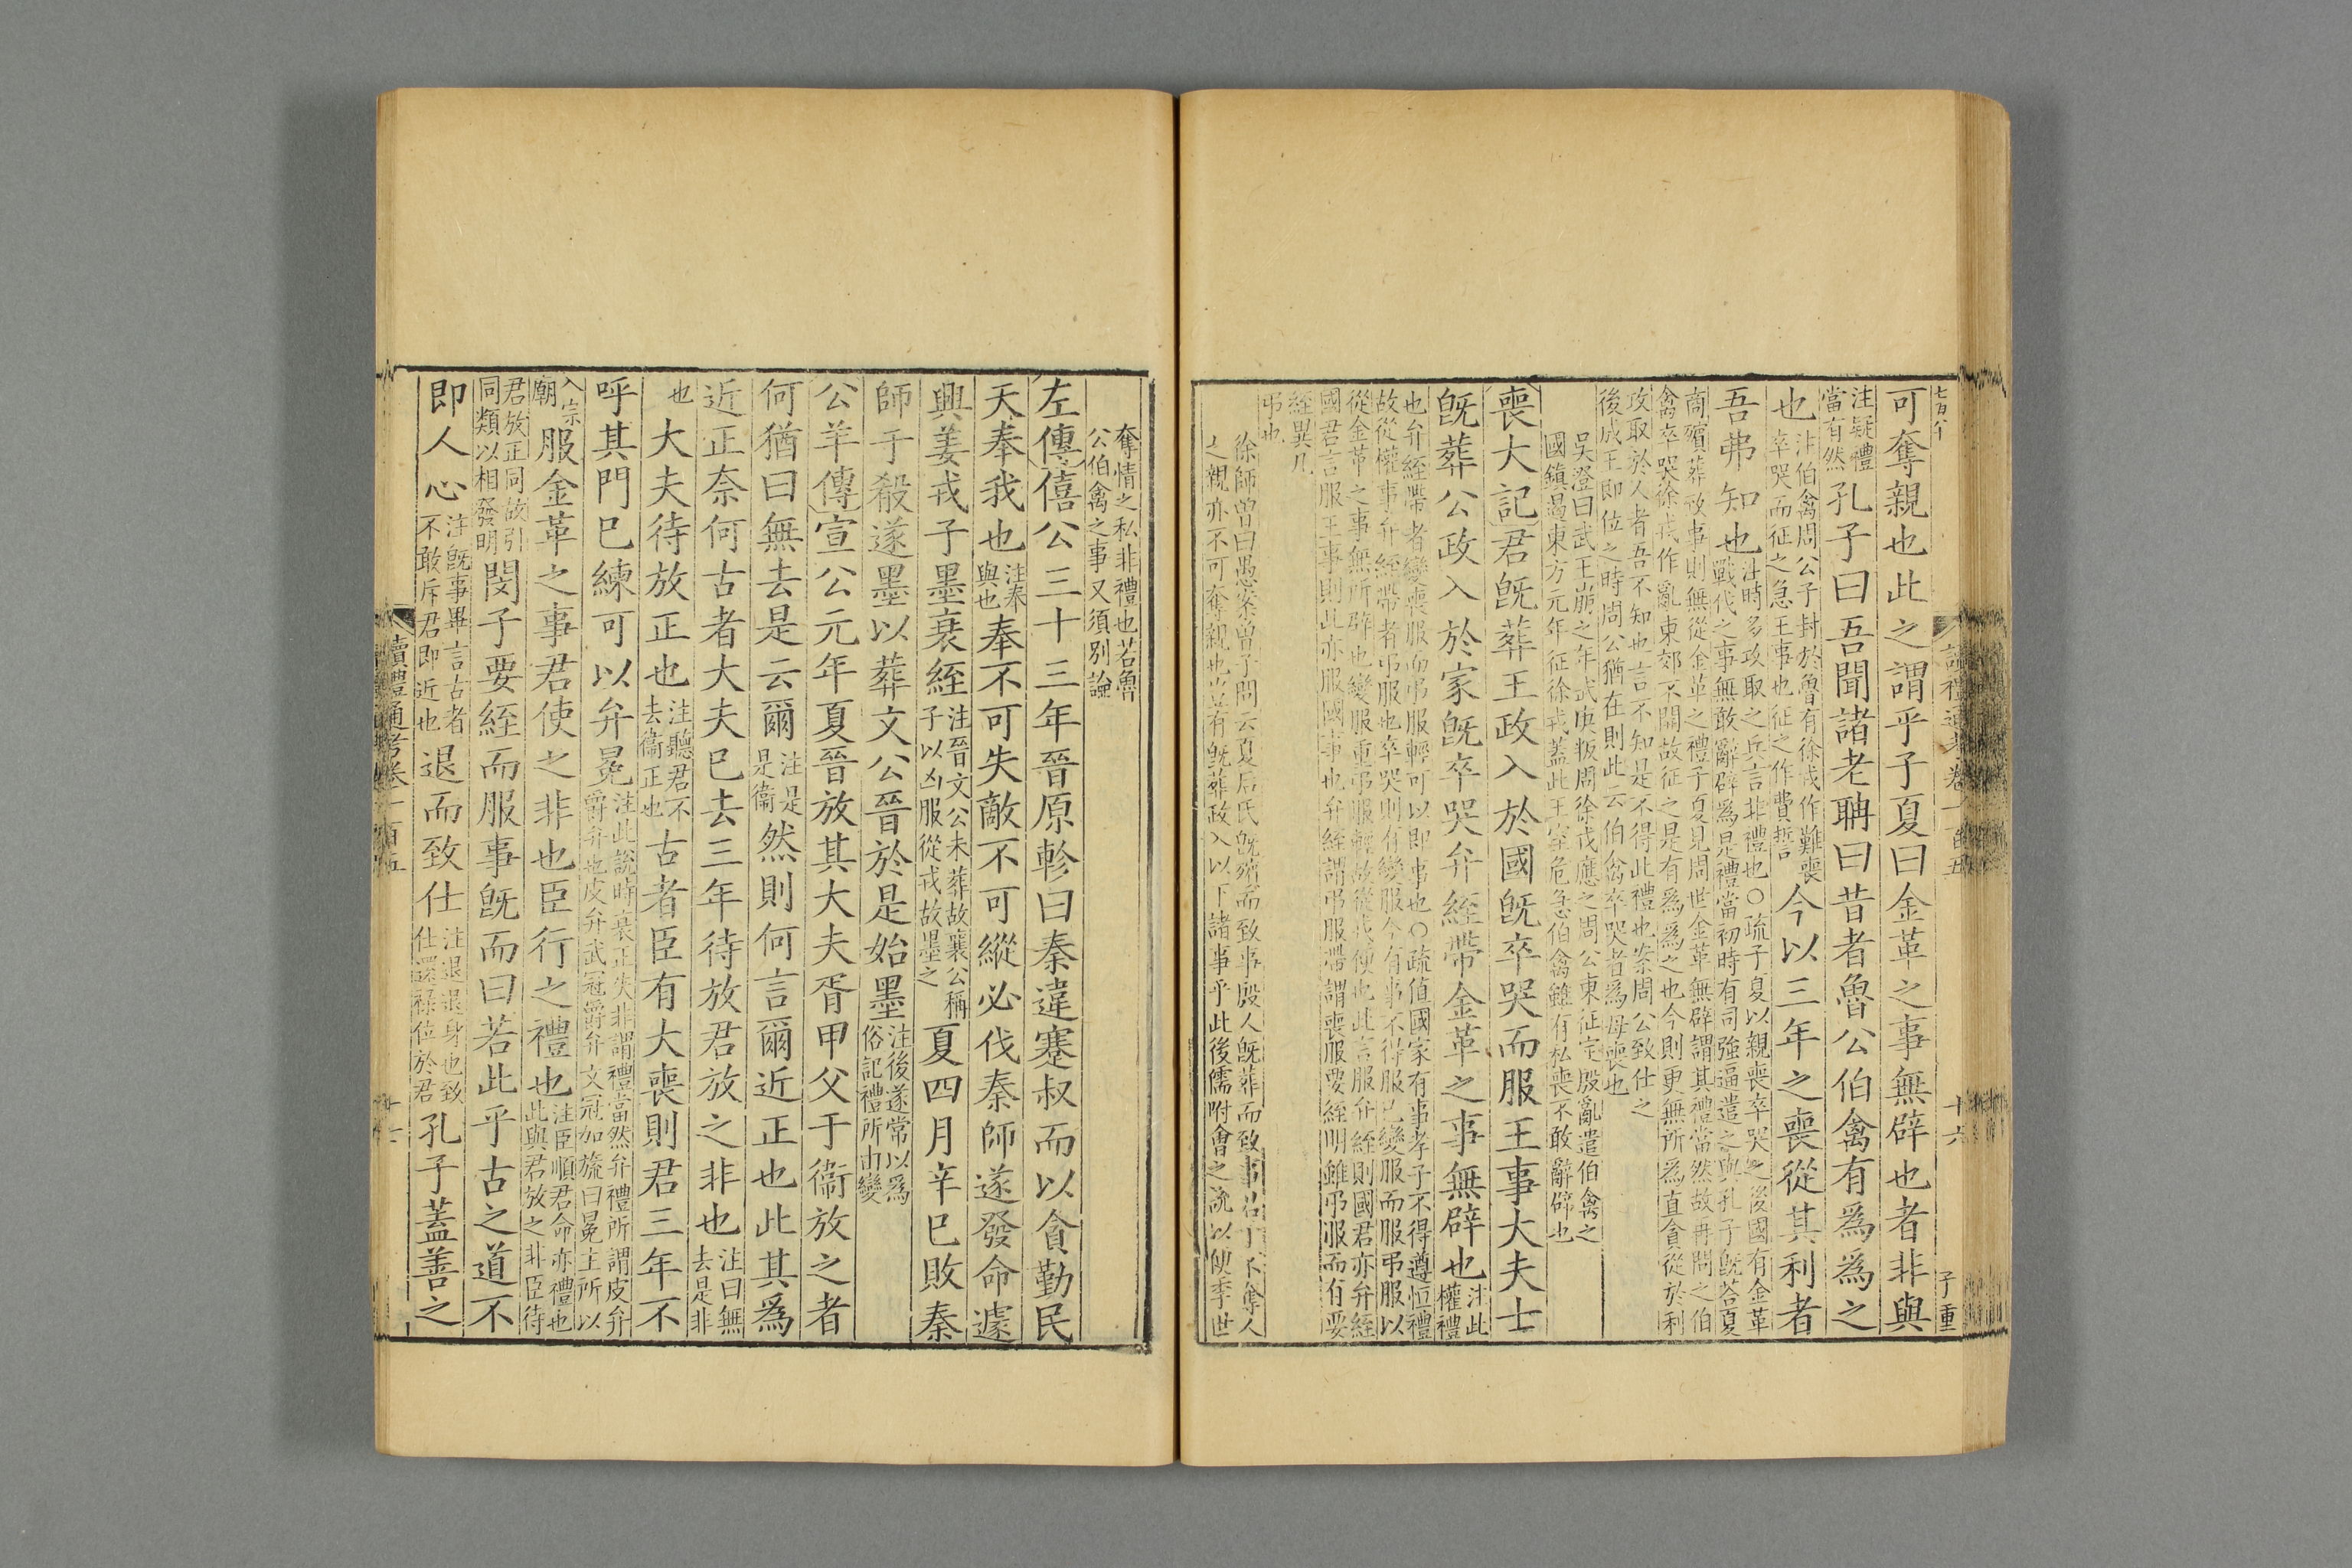 可奪親也此之謂乎子夏曰金革之事無辟也者非與
注疑禮當有然孔子曰吾聞諸老聃曰昔者魯公伯禽有為為之
也注伯禽周公子封於魯有徐戎作難喪卒哭而征之急王事也征之作費誓今以三年之喪從其利者
吾弗知也注時多攻取之兵言非禮也○疏子夏以親喪卒哭之後國有金革戰伐之事無敢辭辟為是禮當初時有司強逼遣之與孔子既答夏
商殯葬致事則無從金革之禮子夏見周世金革無辟謂其禮當然故再問之伯禽卒哭徐戎作亂東郊不開故征之是有為為之也今則更無所為直貪從於利
攻取於人者吾不知也言不知是不得此禮也案周公致仕之後成王即位之時周公猶在則此云伯禽卒哭者為母喪也
吳澄曰武王崩之年武庚叛周徐戎應之周公東征定殷亂遣伯禽之國鎮遏東方元年征徐戎蓋此王室危急伯禽雖有私喪不敢辭辟也
喪大記君既葬王政入於國既卒哭而服王事大夫士
既葬公政入於家既卒哭弁絰帶金革之事無辟也注此權禮
也弁絰帶者變喪服而弔服輕可以即事也○疏值國家有事孝子不得遵恒禮故從權事弁絰帶者弔服也卒哭則有變服今有事不得服已變服而服弔服以
從金革之事無所辟也變服重弔服輕故從戎便也此言服弁絰則國君亦弁絰國君言服王事則此亦服國事也弁絰謂弔服帶謂喪服要絰明雖弔服而有要
絰異凡弔也
徐師曾曰愚案曾子問云夏后氏既殯而致事殷人既葬而致事君子不奪人之親亦不可奪親也豈有既葬政入以下諸事乎此後儒附會之說以便季世
奪情之私非禮也若魯公伯禽之事又須別論
左傳僖公三十三年晉原軫曰秦違蹇叔而以貪勤民
天奉我也注奉與也奉不可失敵不可縱必伐秦師遂發命遽
興姜戎子墨衰絰注晉文公未葬故襄公稱子以凶服從戎故墨之夏四月辛巳敗秦
師于殽遂墨以葬文公晉於是始墨注後遂常以為俗記禮所由變
公羊傳宣公元年夏晉放其大夫胥甲父于衞放之者
何猶曰無去是云爾注是是衞然則何言爾近正也此其為
近正奈何古者大夫已去三年待放君放之非也注曰無去是非
也大夫待放正也注聽君不去衞正也古者臣有大喪則君三年不
呼其門已練可以弁冕注此說時衰正失非謂禮當然弁禮所謂皮弁爵弁也皮弁武冠爵弁文冠加旒曰冕主所以
入宗廟服金革之事君使之非也臣行之禮也注臣順君命亦禮也此與君放之非臣待
君放正同故引同類以相發明閔子要絰而服事既而曰若此乎古之道不
即人心注既事畢言古者不敢斥君即近也退而致仕注退退身也致仕還祿位於君孔子蓋善之
讀禮通考卷一百五
讀禮通考卷一百五
十六
子重